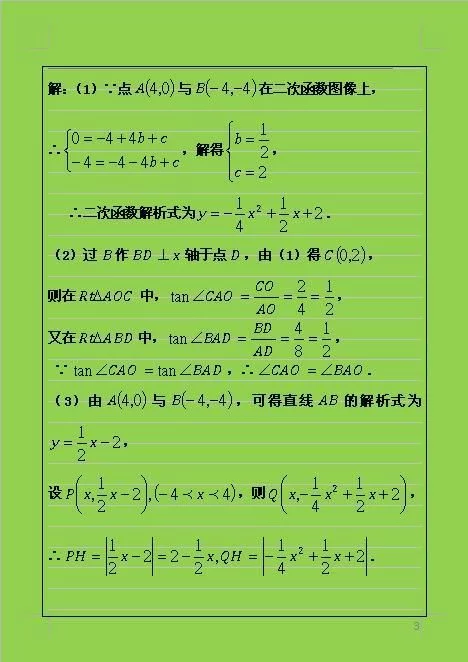 解:(1)∵点A(4,0)与B(-4,-4)在二次函数图像上,
∴{0=-4+4b+c, -4=-4-4b+c, 解得{b=1/2, c=2,
∴二次函数解析式为y=-1/4x²+1/2x+2.
(2)过B作BD⊥x轴于点D,由(1)得C(0,2),
则在Rt△AOC中,tan∠CAO=CO/AO=2/4=1/2,
又在Rt△ABD中,tan∠BAD=BD/AD=4/8=1/2,
∵tan∠CAO=tan∠BAD,∴∠CAO=∠BAO.
(3)由A(4,0)与B(-4,-4),可得直线AB的解析式为
y=1/2x-2,
设P(x,1/2x-2),(-4≺x≺4),则Q(x,-1/4x²+1/2x+2),
∴PH=|1/2x-2|=2-1/2x,QH=|-1/4x²+1/2x+2|.
3